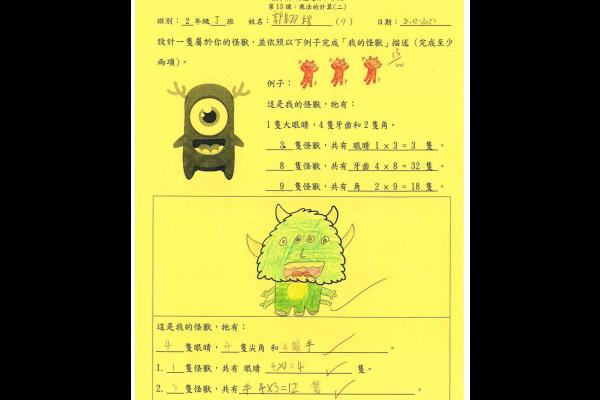 第13課：乘法的計算(二)
班別： 2 年級 J 班 姓名： (9) 日期： 8-12-2023
設計一隻屬於你的怪獸，並依照以下例子完成「我的怪獸」描述（完成至少
兩項）。
例子：
這是我的怪獸，牠有：
1 隻大眼睛，4 隻牙齒和 2 隻角。
3 隻怪獸，共有 眼睛 1 × 3 = 3 隻 。
8 隻怪獸，共有 牙齒 4 × 8 = 32 隻 。
9 隻怪獸，共有 角 2 × 9 = 18 隻 。
這是我的怪獸，牠有：
4 隻眼睛， 4 隻尖角 和 4隻手 。
1. 1 隻怪獸，共有 眼睛 4×1=4 隻。
2. 3 隻怪獸，共有 手 4×3=12 隻 。